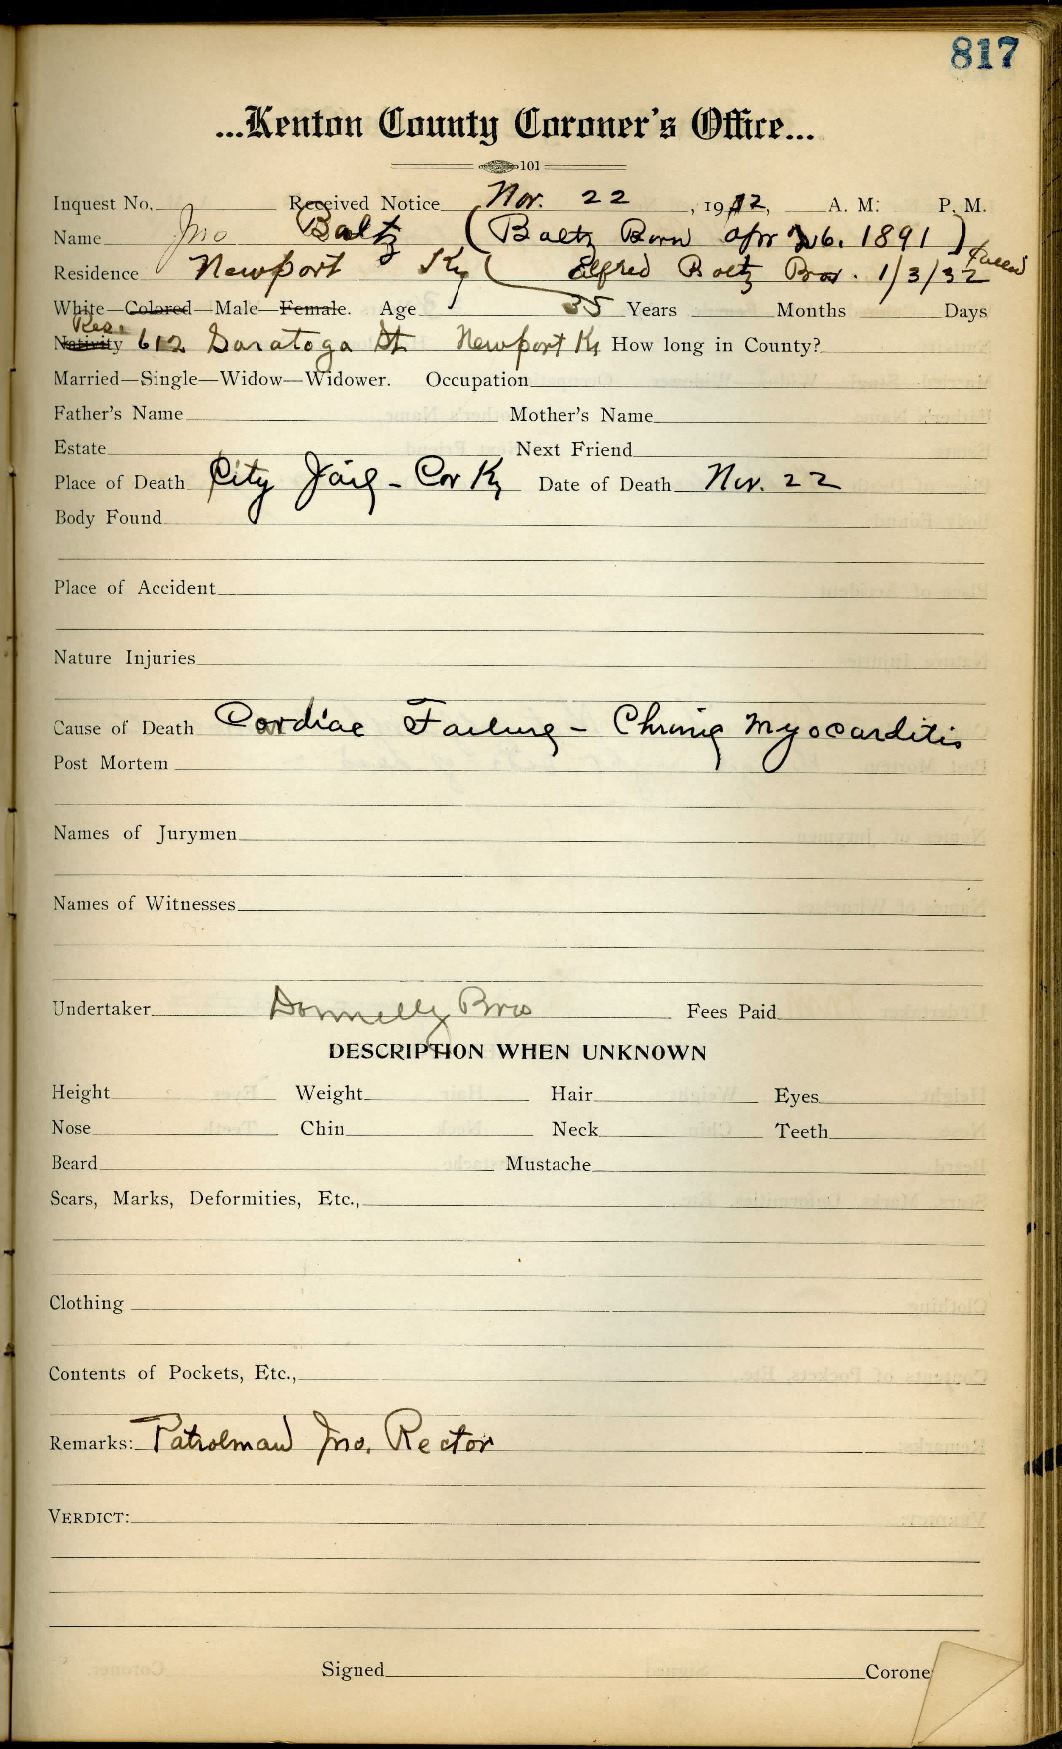 817
...Kenton County Coroner's Office...
101
Inquest No. Received Notice Nov. 22, 1912, A. M. P. M.
Name Jno Baltz (Baltz Born Apr 26. 1891)
Residence Newport Ky Alfred Baltz Bro. 1/3/32
White—Colored—Male—Female. Age 35 Years Months Days
Res.
Nativity 612 Saratoga St Newport Ky How long in County?
Married—Single—Widow—Widower. Occupation
Father's Name Mother's Name
Estate Next Friend
Place of Death City Jail - Cov Ky Date of Death Nov. 22
Body Found
Place of Accident
Nature Injuries
Cause of Death Cardiac Failure - Chronic Myocarditis
Post Mortem
Names of Jurymen
Names of Witnesses
Undertaker Donnelly Bros Fees Paid
DESCRIPTION WHEN UNKNOWN
Height Weight Hair Eyes
Nose Chin Neck Teeth
Beard Mustache
Scars, Marks, Deformities, Etc.,
Clothing
Contents of Pockets, Etc.,
Remarks: Patrolman Jno. Rector
VERDICT:
Signed Corone